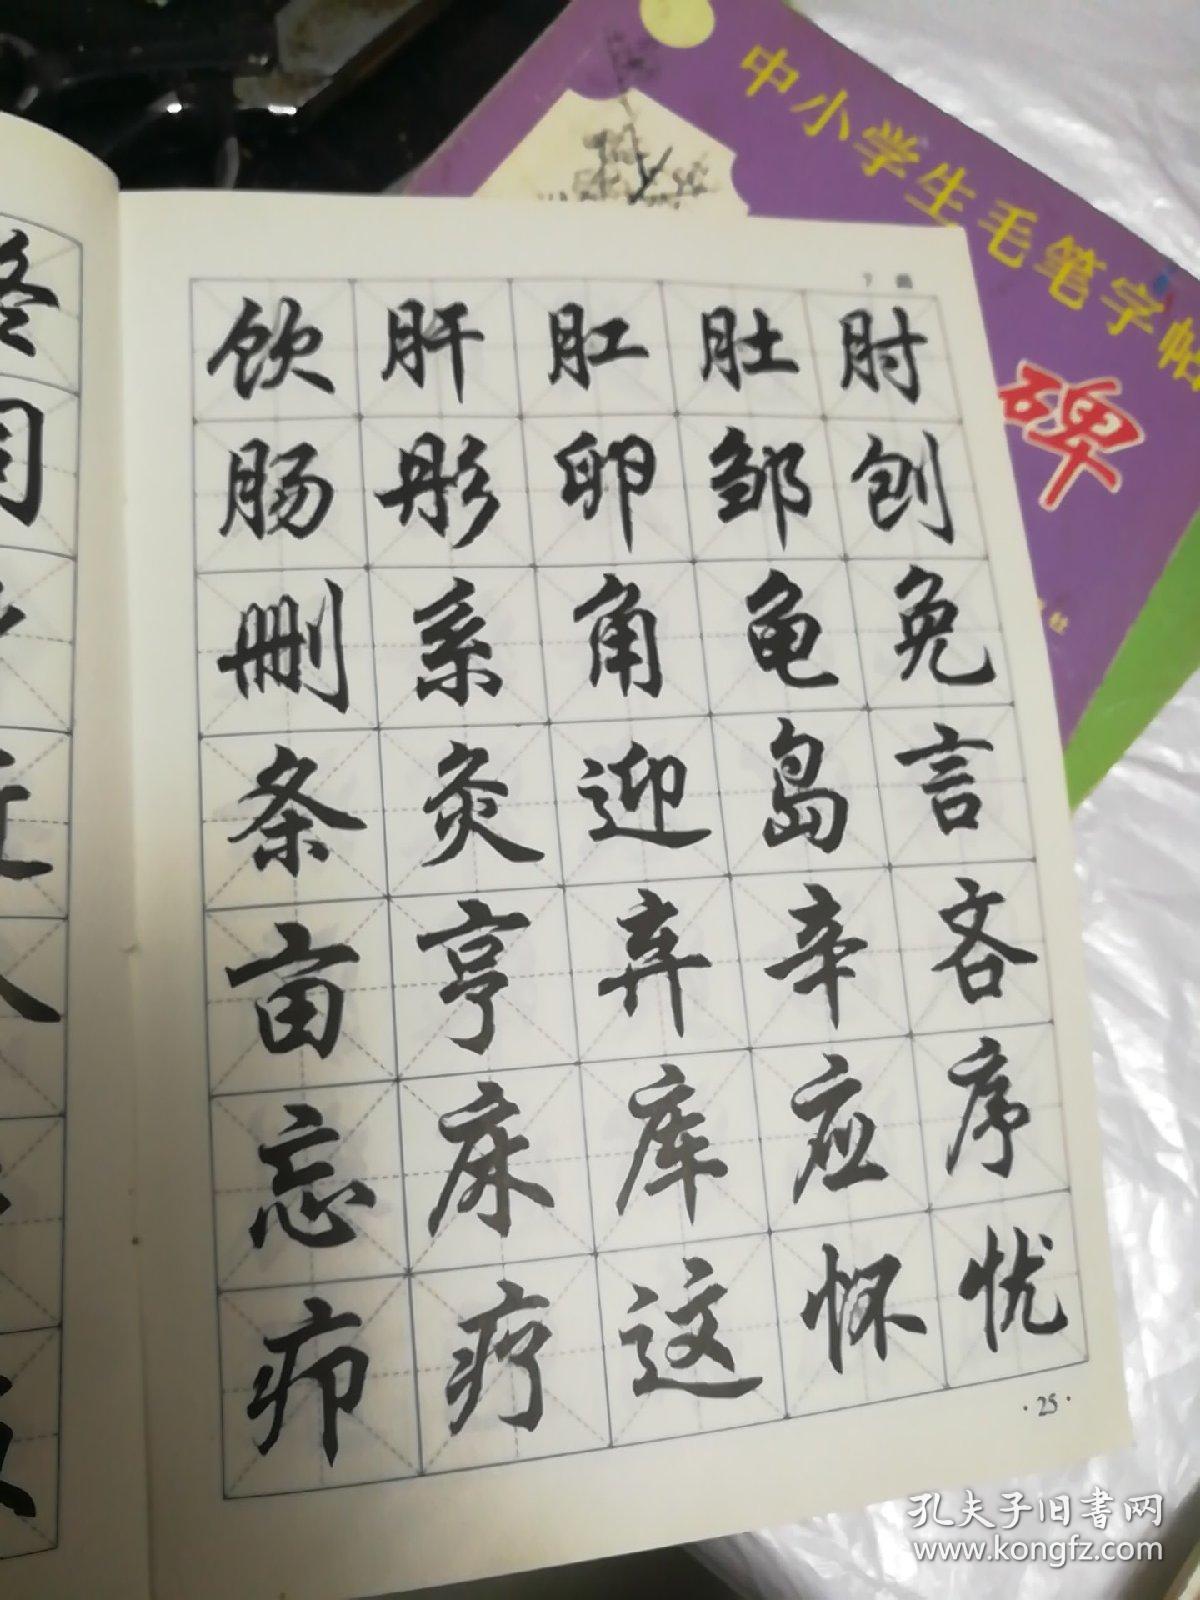 中小学生毛笔字帖
碑
7画
饮肝肛肚肘
肠彤卵邹刨
删系角龟免
条灸迎岛言
亩亨弃辛吝
忘床库应序
疖疗这怀忧
·25·
孔夫子旧书网
www.kongfz.com